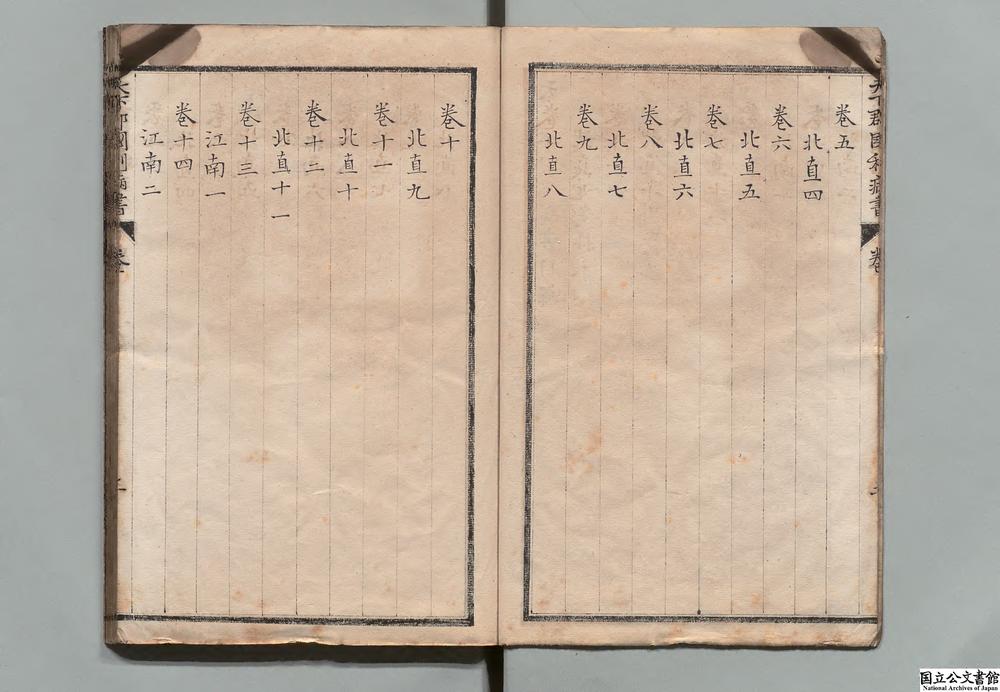 天下郡國利病書 卷
卷五
北直四
卷六
北直五
卷七
北直六
卷八
北直七
卷九
北直八
卷十
北直九
卷十一
北直十
卷十二
北直十一
卷十三
江南一
卷十四
江南二
天下郡國利病書 卷
国立公文書館
National Archives of Japan